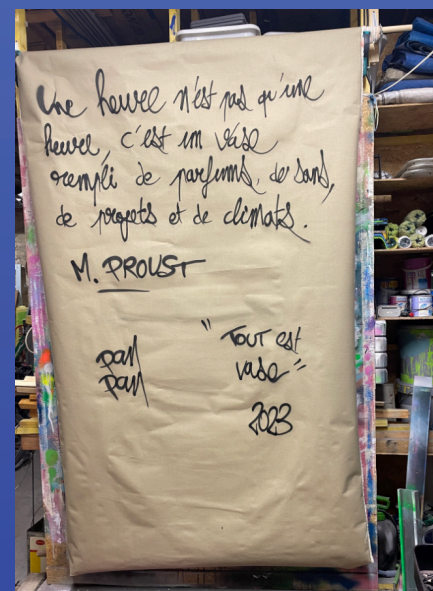 Une heure n'est pas qu'une
heure, c'est un vase
rempli de parfums, de sons,
de projets et de climats.
M. PROUST
pan
pan
"Tout est
vase"
2023